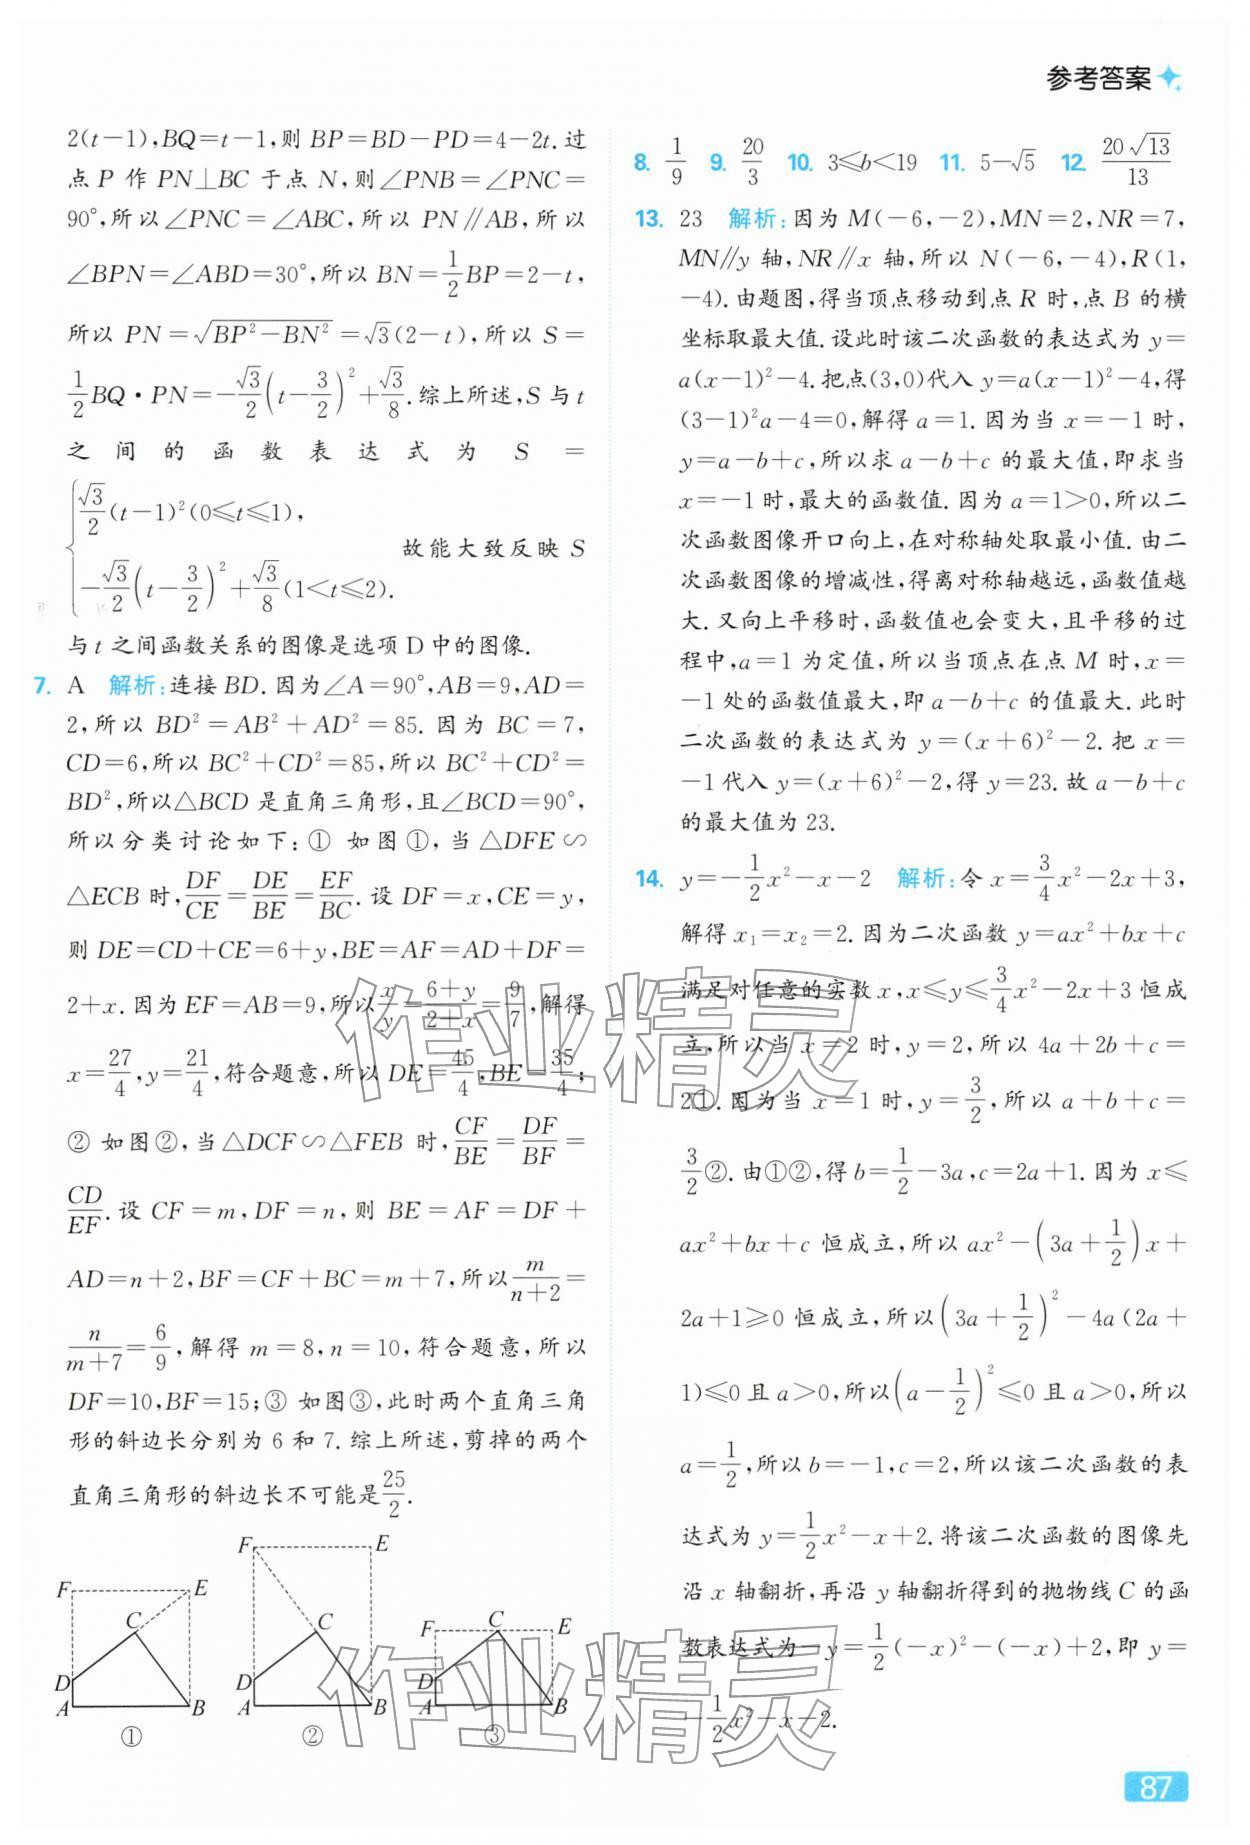 参考答案
2(t−1),BQ=t−1,则 BP=BD−PD=4−2t.过
点 P 作 PN⊥BC 于点 N,则∠PNB=∠PNC=
90°,所以∠PNC=∠ABC,所以 PN∥AB,所以
∠BPN=∠ABD=30°,所以 BN=1/2BP=2−t,
所以 PN=√(BP²−BN²)=√3(2−t),所以 S=
1/2BQ·PN=−√3/2(t−3/2)²+√3/8.综上所述,S 与 t
之间的函数表达式为 S=
{√3/2(t−1)²(0≤t≤1),
−√3/2(t−3/2)²+√3/8(1<t≤2). 故能大致反映 S
与 t 之间函数关系的图像是选项 D 中的图像.
7. A 解析:连接 BD.因为∠A=90°,AB=9,AD=
2,所以 BD²=AB²+AD²=85.因为 BC=7,
CD=6,所以 BC²+CD²=85,所以 BC²+CD²=
BD²,所以△BCD 是直角三角形,且∠BCD=90°,
所以分类讨论如下:① 如图①,当 △DFE∽
△ECB 时,DF/CE=DE/BE=EF/BC.设 DF=x,CE=y,
则 DE=CD+CE=6+y,BE=AF=AD+DF=
2+x.因为 EF=AB=9,所以x/y=(6+y)/(2+x)=9/7,解得
x=27/4,y=21/4,符合题意,所以 DE=45/4,BE=35/4;
② 如图②,当△DCF∽△FEB 时,CF/BE=DF/BF=
CD/EF.设 CF=m,DF=n,则 BE=AF=DF+
AD=n+2,BF=CF+BC=m+7,所以m/(n+2)=
n/(m+7)=6/9,解得 m=8,n=10,符合题意,所以
DF=10,BF=15;③ 如图③,此时两个直角三角
形的斜边长分别为 6 和 7.综上所述,剪掉的两个
直角三角形的斜边长不可能是25/2.
F E C D A B ①
F E C D A B ②
F C E D A B ③
8. 1/9 9. 20/3 10. 3≤b<19 11. 5−√5 12. 20√13/13
13. 23 解析:因为 M(−6,−2),MN=2,NR=7,
MN∥y 轴,NR∥x 轴,所以 N(−6,−4),R(1,
−4).由题图,得当顶点移动到点 R 时,点 B 的横
坐标取最大值.设此时该二次函数的表达式为 y=
a(x−1)²−4.把点(3,0)代入 y=a(x−1)²−4,得
(3−1)²a−4=0,解得 a=1.因为当 x=−1 时,
y=a−b+c,所以求 a−b+c 的最大值,即求当
x=−1 时,最大的函数值.因为 a=1>0,所以二
次函数图像开口向上,在对称轴处取最小值.由二
次函数图像的增减性,得离对称轴越远,函数值越
大.又向上平移时,函数值也会变大,且平移的过
程中,a=1 为定值,所以当顶点在点 M 时,x=
−1 处的函数值最大,即 a−b+c 的值最大.此时
二次函数的表达式为 y=(x+6)²−2.把 x=
−1 代入 y=(x+6)²−2,得 y=23.故 a−b+c
的最大值为 23.
14. y=−1/2x²−x−2 解析:令 x=3/4x²−2x+3,
解得 x₁=x₂=2.因为二次函数 y=ax²+bx+c
满足对任意的实数 x,x≤y≤3/4x²−2x+3 恒成
立,所以当 x=2 时,y=2,所以 4a+2b+c=
2①.因为当 x=1 时,y=3/2,所以 a+b+c=
3/2②.由①②,得 b=1/2−3a,c=2a+1.因为 x≤
ax²+bx+c 恒成立,所以 ax²−(3a+1/2)x+
2a+1≥0 恒成立,所以(3a+1/2)²−4a(2a+
1)≤0 且 a>0,所以(a−1/2)²≤0 且 a>0,所以
a=1/2,所以 b=−1,c=2,所以该二次函数的表
达式为 y=1/2x²−x+2.将该二次函数的图像先
沿 x 轴翻折,再沿 y 轴翻折得到的抛物线 C 的函
数表达式为−y=1/2(−x)²−(−x)+2,即 y=
−1/2x²−x−2.
作业精灵
作业精灵
87